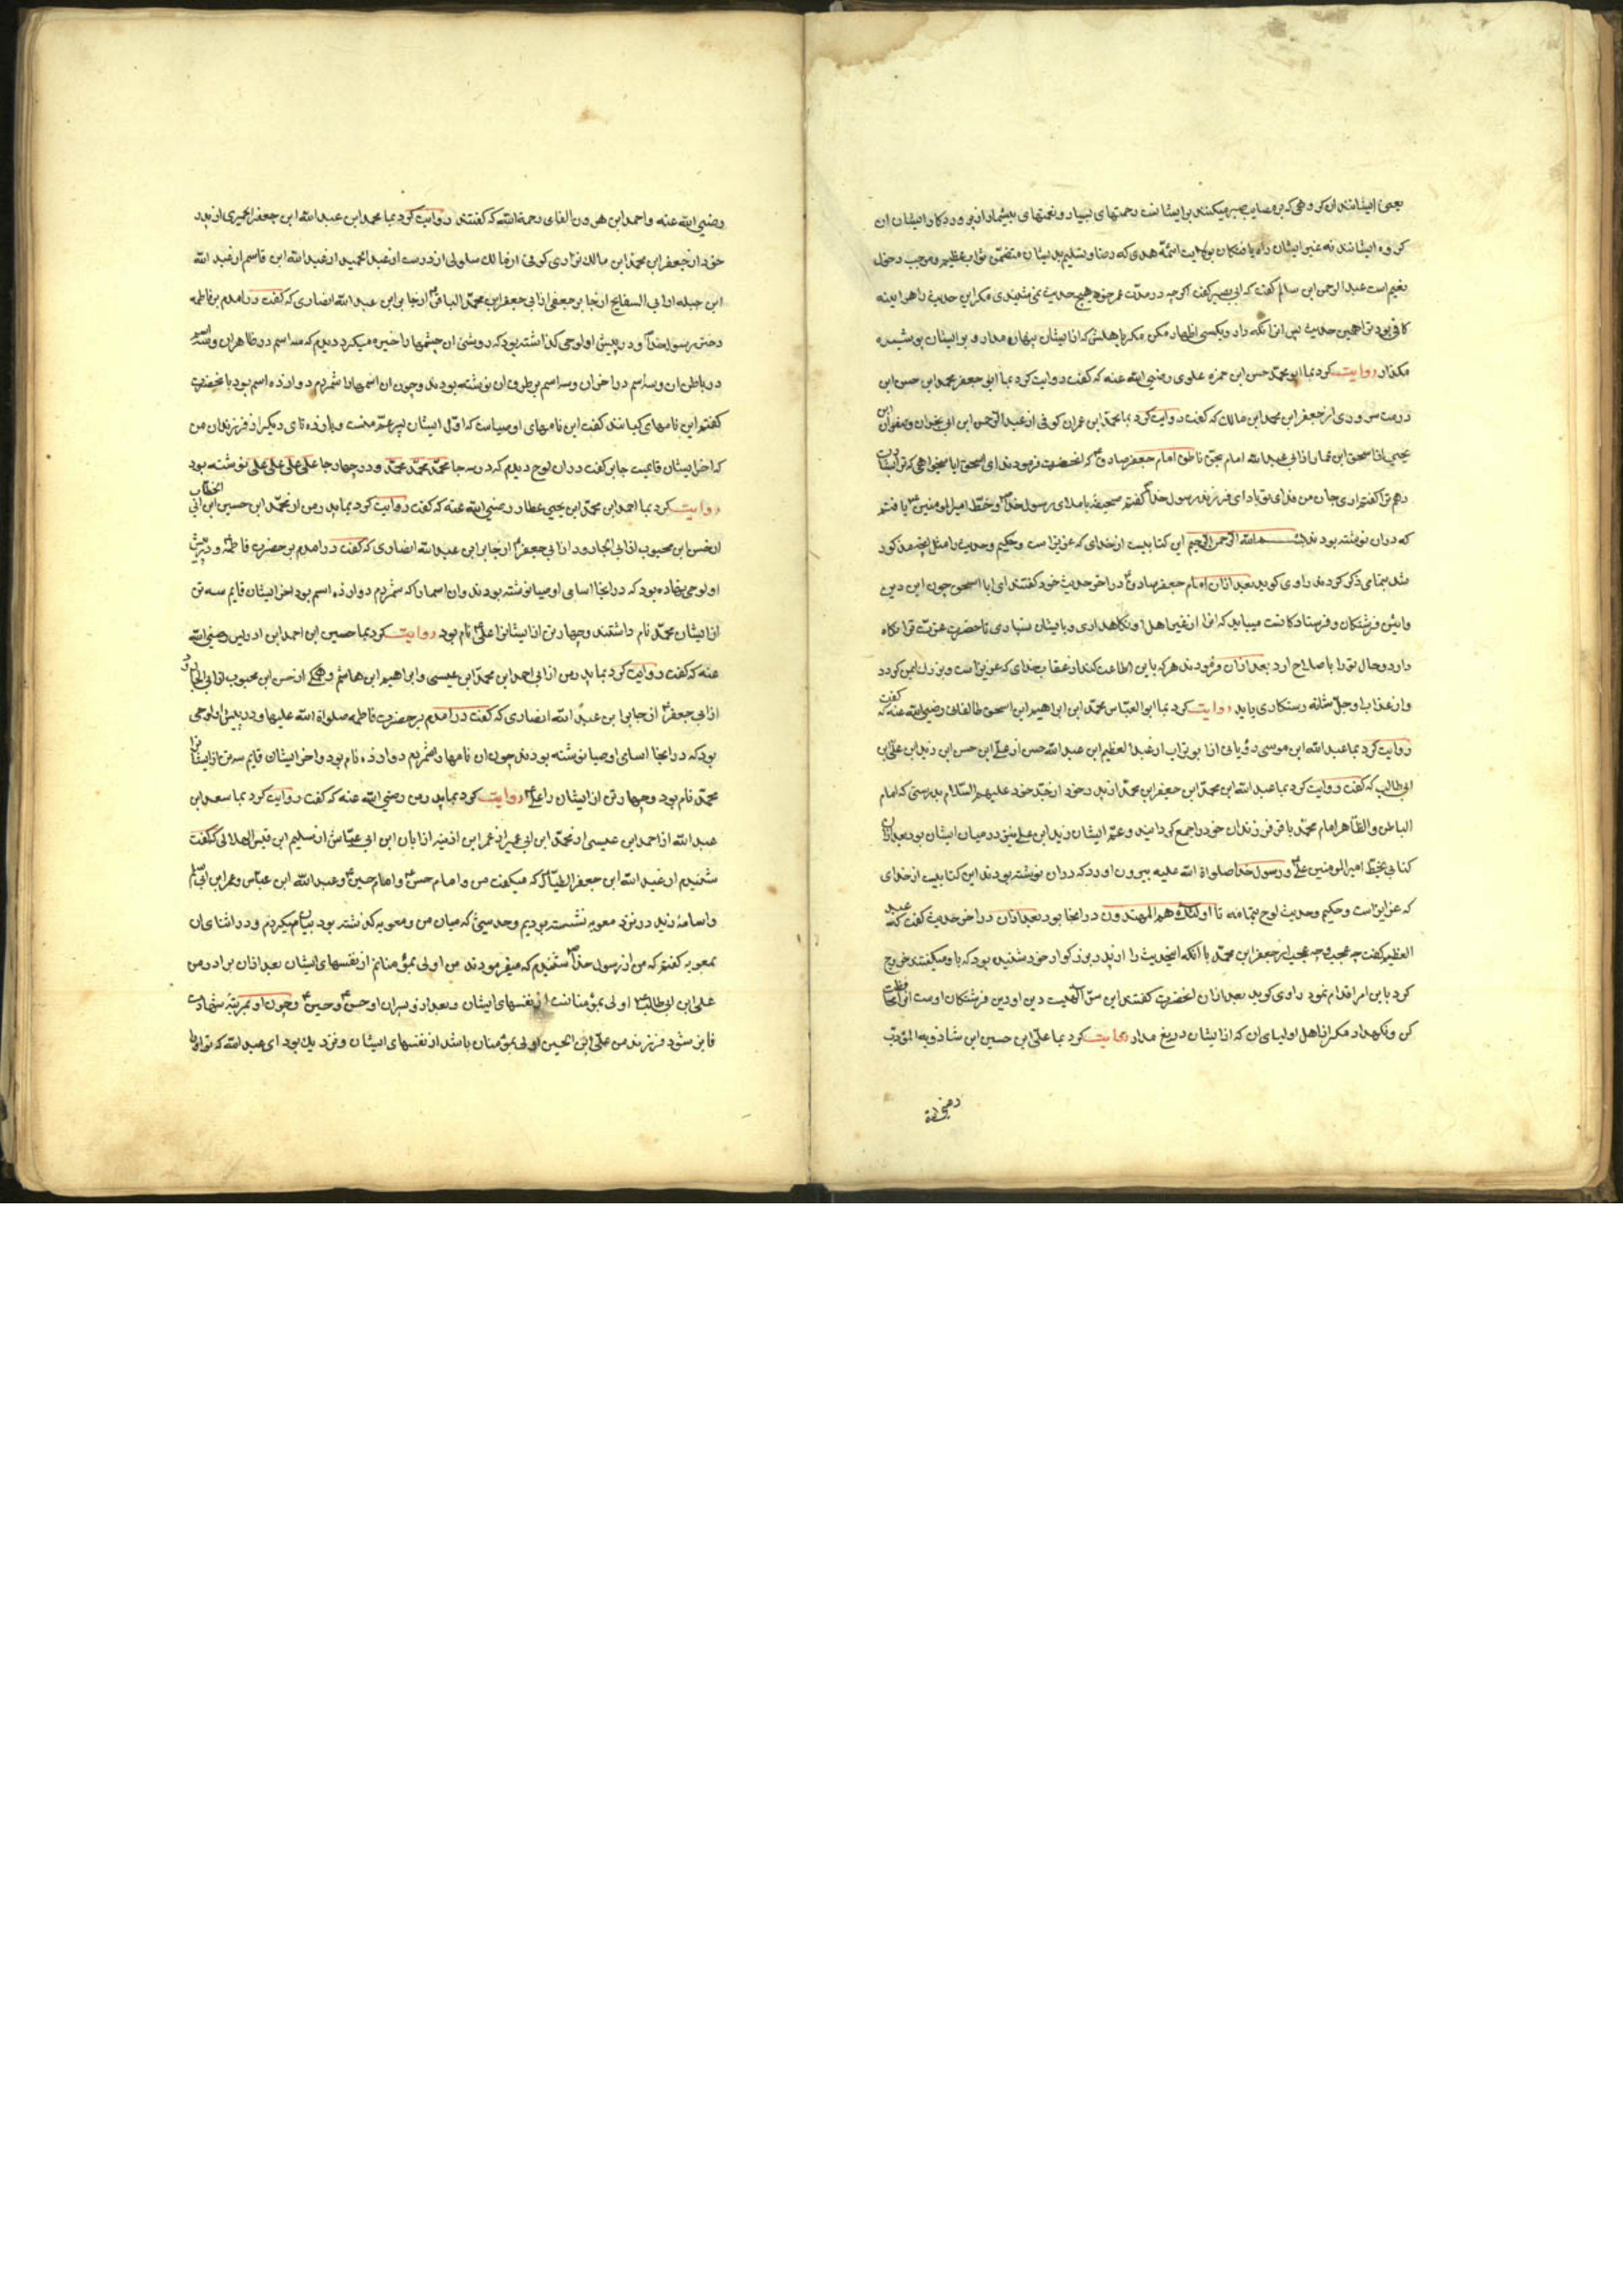 یعنی ایشانند ان کروهی که بر مصایب صبر میکنند بر ایشانست رحمتهای بسیار و نعمتهای بیشمار از پروردکار ایشان ان
کروه ایشانند نه غیر ایشان راه یافتکان بولایت ائمّۀ هدی که رضا و تسلیم بدیشان متضمّن ثواب عظیم و موجب دخول
نعیم است عبد الرحمن ابن سالم کفت که ابی بصیر کفت اکر چه در مدّت عمر خود هیچ حدیث نمی شنیدی مکر این حدیث را هر اینه
کافی بود ترا همین حدیث پس انرا نکه دار و بکسی اظهار مکن مکر باهلش که از ایشان پنهان مدار و بر ایشان پوشیده
مکذار روایت کرد بما ابو محمّد حسن ابن حمزه علوی رضی الله عنه که کفت روایت کرد بما ابو جعفر محمد ابن حسن ابن
درست سروردی از جعفر ابن محمد ابن مالک که کفت روایت کرد بما محمّد ابن عمران کوفی از عبد الرّحمن ابن ابی نجران و صفوان ابن
یحیی از اسحق ابن عمار از ابی عبد الله امام بحق ناطق امام جعفر صادق ع که انحضرت فرمودند ای اسحق ایا میخواهی که ترا بشارت
دهم ترا کفتم اری جان من فدای تو باد ای فرزند رسول خدا کفتم صحیفۀ باملای رسول خدا و خطّ امیر المومنین یافتم
که در ان نوشته بودند بسم الله الرّحمن الرّحیم این کتابیست از خدای که عزیز است و حکیم و حدیث را مثل انچه مذکور
شد بتمامی ذکر کردند راوی کوید بعد ازان امام جعفر صادق ع در اخر حدیث خود کفتند ای ابا اسحق چون این دین
و ائین فرشتکان و فرستادکانست میباید که انرا از غیر اهل او نکاهداری و بایشان نسپاری تا حضرت عزت ترا نکاه
دارد و حال ترا باصلاح ارد بعد ازان فرمودند هر که باین اطاعت کند از عقاب خدای که عزیز است و بزرك ایمن کردد
و از عذاب او جلّ شانه رستکاری یابد روایت کرد بما ابو العبّاس محمّد ابن ابراهیم ابن اسحق طالقانی رضی الله عنه که کفت
روایت کرد بما عبد الله ابن موسی رؤیانی از ابو تراب از عبد العظیم ابن عبد الله حسن از علیّ ابن حسن ابن زید ابن علیّ ابن
ابی طالب که کفت روایت کرد بما عبد الله ابن محمّد ابن جعفر ابن محمّد از پدر خود از جدّ خود علیهم السّلام بدرستی که امام
الباطن و الظّاهر امام محمّد باقر فرزندان خود را جمع کردانیدند و عمّ ایشان زید ابن علی نیز در میان ایشان بود بعد ازان
کتابی بخط امیر المومنین علی و رسول خدا صلواة الله علیه بیرون اورد که در ان نوشته بودند این کتابیست از خدای
که عزیز است و حکیم و حدیث لوح بتمامه تا اولئك هم المهتدون در انجا بود بعد ازان در اخر حدیث کفت که عبد
العظیم کفت چه عجب و چه عجب از جعفر ابن محمّد با انکه انحدیث را از پدر بزرکوار خود شنیده بود که با و میکفتند خروج
کرد باین امر اقدام نمود راوی کوید بعد ازان انحضرت کفتند این سرّ الهیست دین او دین فرشتکان اوست انرا محافظت
کن و نکهدار مکر از اهل اولیای ان که از ایشان دریغ مدار روایت کرد بما علیّ ابن حسین ابن شاذویه المؤدّب
رضی الله
رضی الله عنه و احمد ابن هرون الفامی رحمة الله که کفتند روایت کرد بما محمد ابن عبد الله ابن جعفر الحمیری از پدر
خود از جعفر ابن محمّد ابن مالك فزاری کوفی از مالك سلولی از درست از عبد الحمید از عبد الله ابن قاسم از عبد الله
ابن جبله از ابی السفایج از جابر جعفی از ابی جعفر ابن محمّد الباقر از جابر ابن عبد الله انصاری که کفت در امدم بر فاطمه
دختر رسول خدا و در پیش او لوحی کذاشته بود که روشنی ان چشمها را خیره میکرد دیدم که سه اسم در ظاهر ان و سه اسم
در باطن ان و سه اسم در اخر ان و سه اسم بر طرف ان نوشته بودند و چون ان اسمها را شمردم دوازده اسم بود بانحضرت
کفتم این نامهای کیانند کفت این نامهای اوصیاست که اوّل ایشان پسر عمّ منست و یازده تای دیکر از فرزندان من
که اخر ایشان قایمست جابر کفت در ان لوح دیدم که در سه جا محمّد محمّد محمّد و در چهار جا علی علی علی علی نوشته بود
روایت کرد بما احمد ابن محمّد ابن یحیی عطار رضی الله عنه که کفت روایت کرد بما پدر من از محمّد ابن حسین ابن ابی الخطاب
از حسن ابن محبوب از ابی الجارود از ابی جعفر ع از جابر ابن عبد الله انصاری که کفت در امدم بر حضرت فاطمه و در پیش
او لوحی نهاده بود که در انجا اسامی اوصیا نوشته بودند و ان اسما را که شمردم دوازده اسم بود اخر ایشان قایم سه تن
از ایشان محمّد نام داشتند و چهار تن از ایشانرا علی نام بود روایت کرد بما حسین ابن احمد ابن ادریس رضی الله
عنه که کفت روایت کرد بما پدر من از ابی احمد ابن محمّد ابن عیسی و ابراهیم ابن هاشم و همکی از حسن ابن محبوب از ابی الجارود
از ابی جعفر ع از جابر ابن عبد الله انصاری که کفت در امدم بر حضرت فاطمه صلواة الله علیها و در پیش او لوحی
بود که در انجا اسامی اوصیا نوشته بودند چون ان نامها را شمردم دوازده نام بود و اخر ایشان قایم سه تن از ایشانرا
محمّد نام بود و چهار تن از ایشان را علی روایت کرد بما پدر من رضی الله عنه که کفت روایت کرد بما سعد ابن
عبد الله از احمد ابن عیسی از محمّد ابن ابی عمیر از عمر ابن اذینه از ابان ابن ابی عیّاش از سلیم ابن قیس الهلالی که کفت
شنیدم از عبد الله ابن جعفر الطیّار که میکفت من و امام حسن و امام حسین و عبد الله ابن عباس و عمر ابن ابی سلمه
و اسامۀ زید در نزد معویه نشسته بودیم و حدیثی که میان من و معویه کذشته بود بیان میکردم و در اثنای ان
بمعویه کفتم که من از رسول خدا شنیدم که میفرمودند من اولی بمؤمنانم از نفسهای ایشان بعد ازان برادر من
علی ابن ابی طالب اولی بمؤمنانست از نفسهای ایشان و بعد از و پسران او حسن و حسین و چون او بمرتبۀ شهادت
فایز شود فرزند من علیّ ابن الحسین اولی بمؤمنان باشد از نفسهای ایشان و نزدیك بود ای عبد الله که تو او را